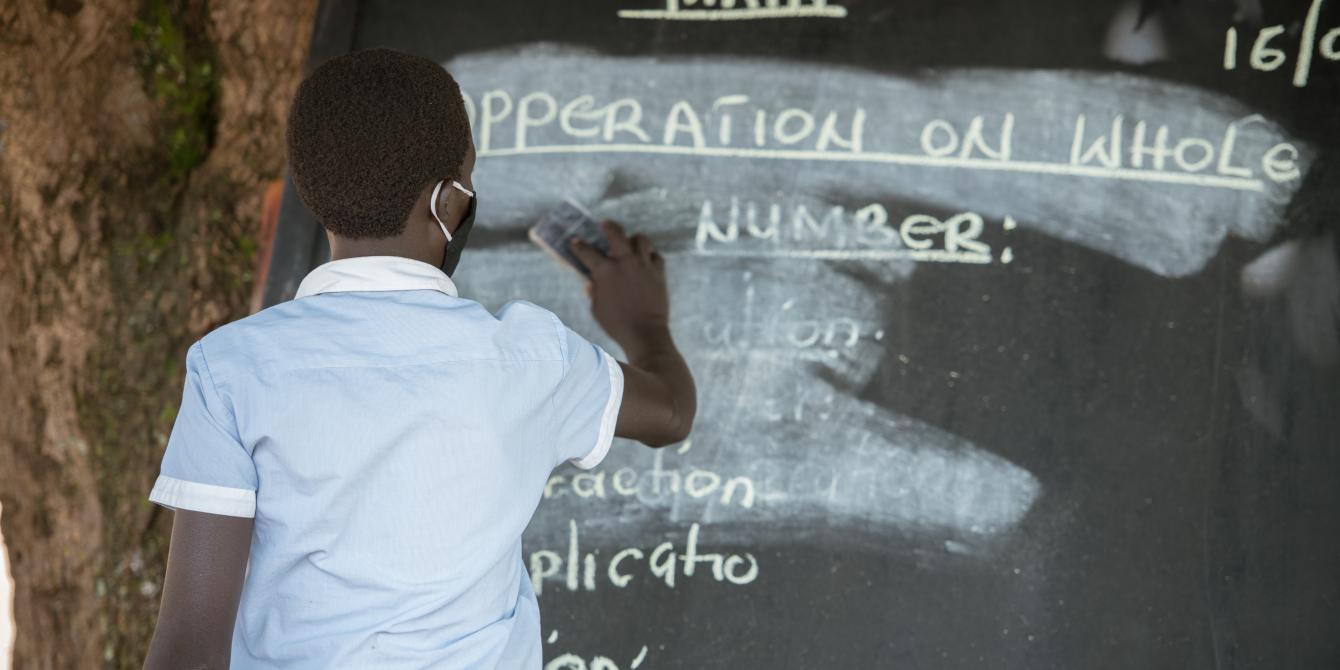 16/
OPPERATION ON WHOLE
NUMBER:
ution.
raction
plicatio